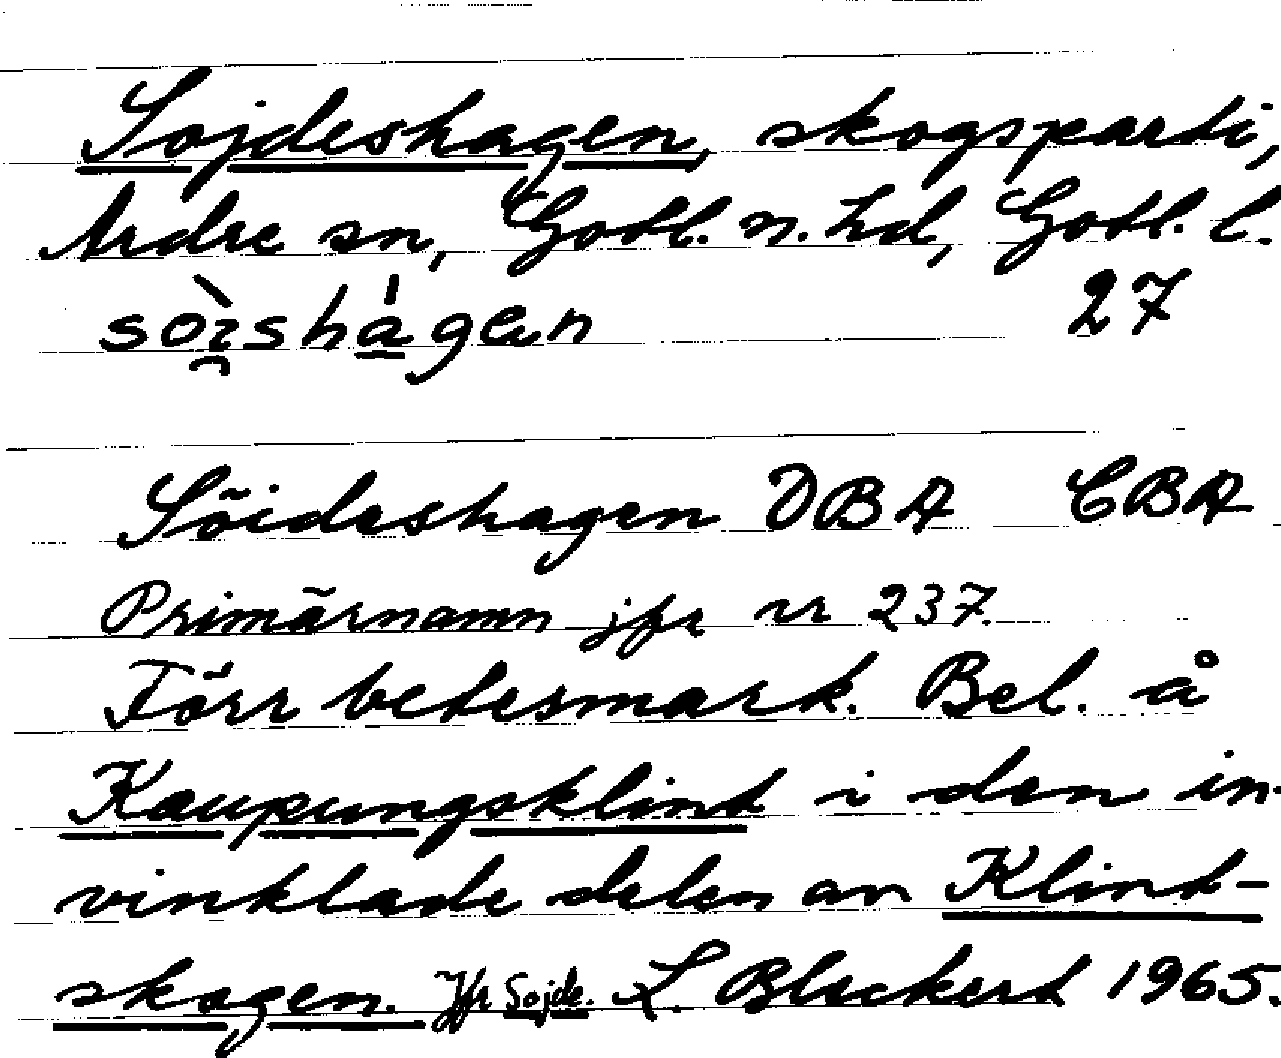 Sojdeshagen, skogsparti,
Ardre sn, Gotl. n. hd, Gotl. l.
27
Söideshagen DBA CBA
Primärnamn jfr nr 237.
Förr betesmark. Bel. å
Kaupungsklint i den in-
vinklade delen av Klint-
skogen. Jfr Sojde. L. Bleckert 1965.